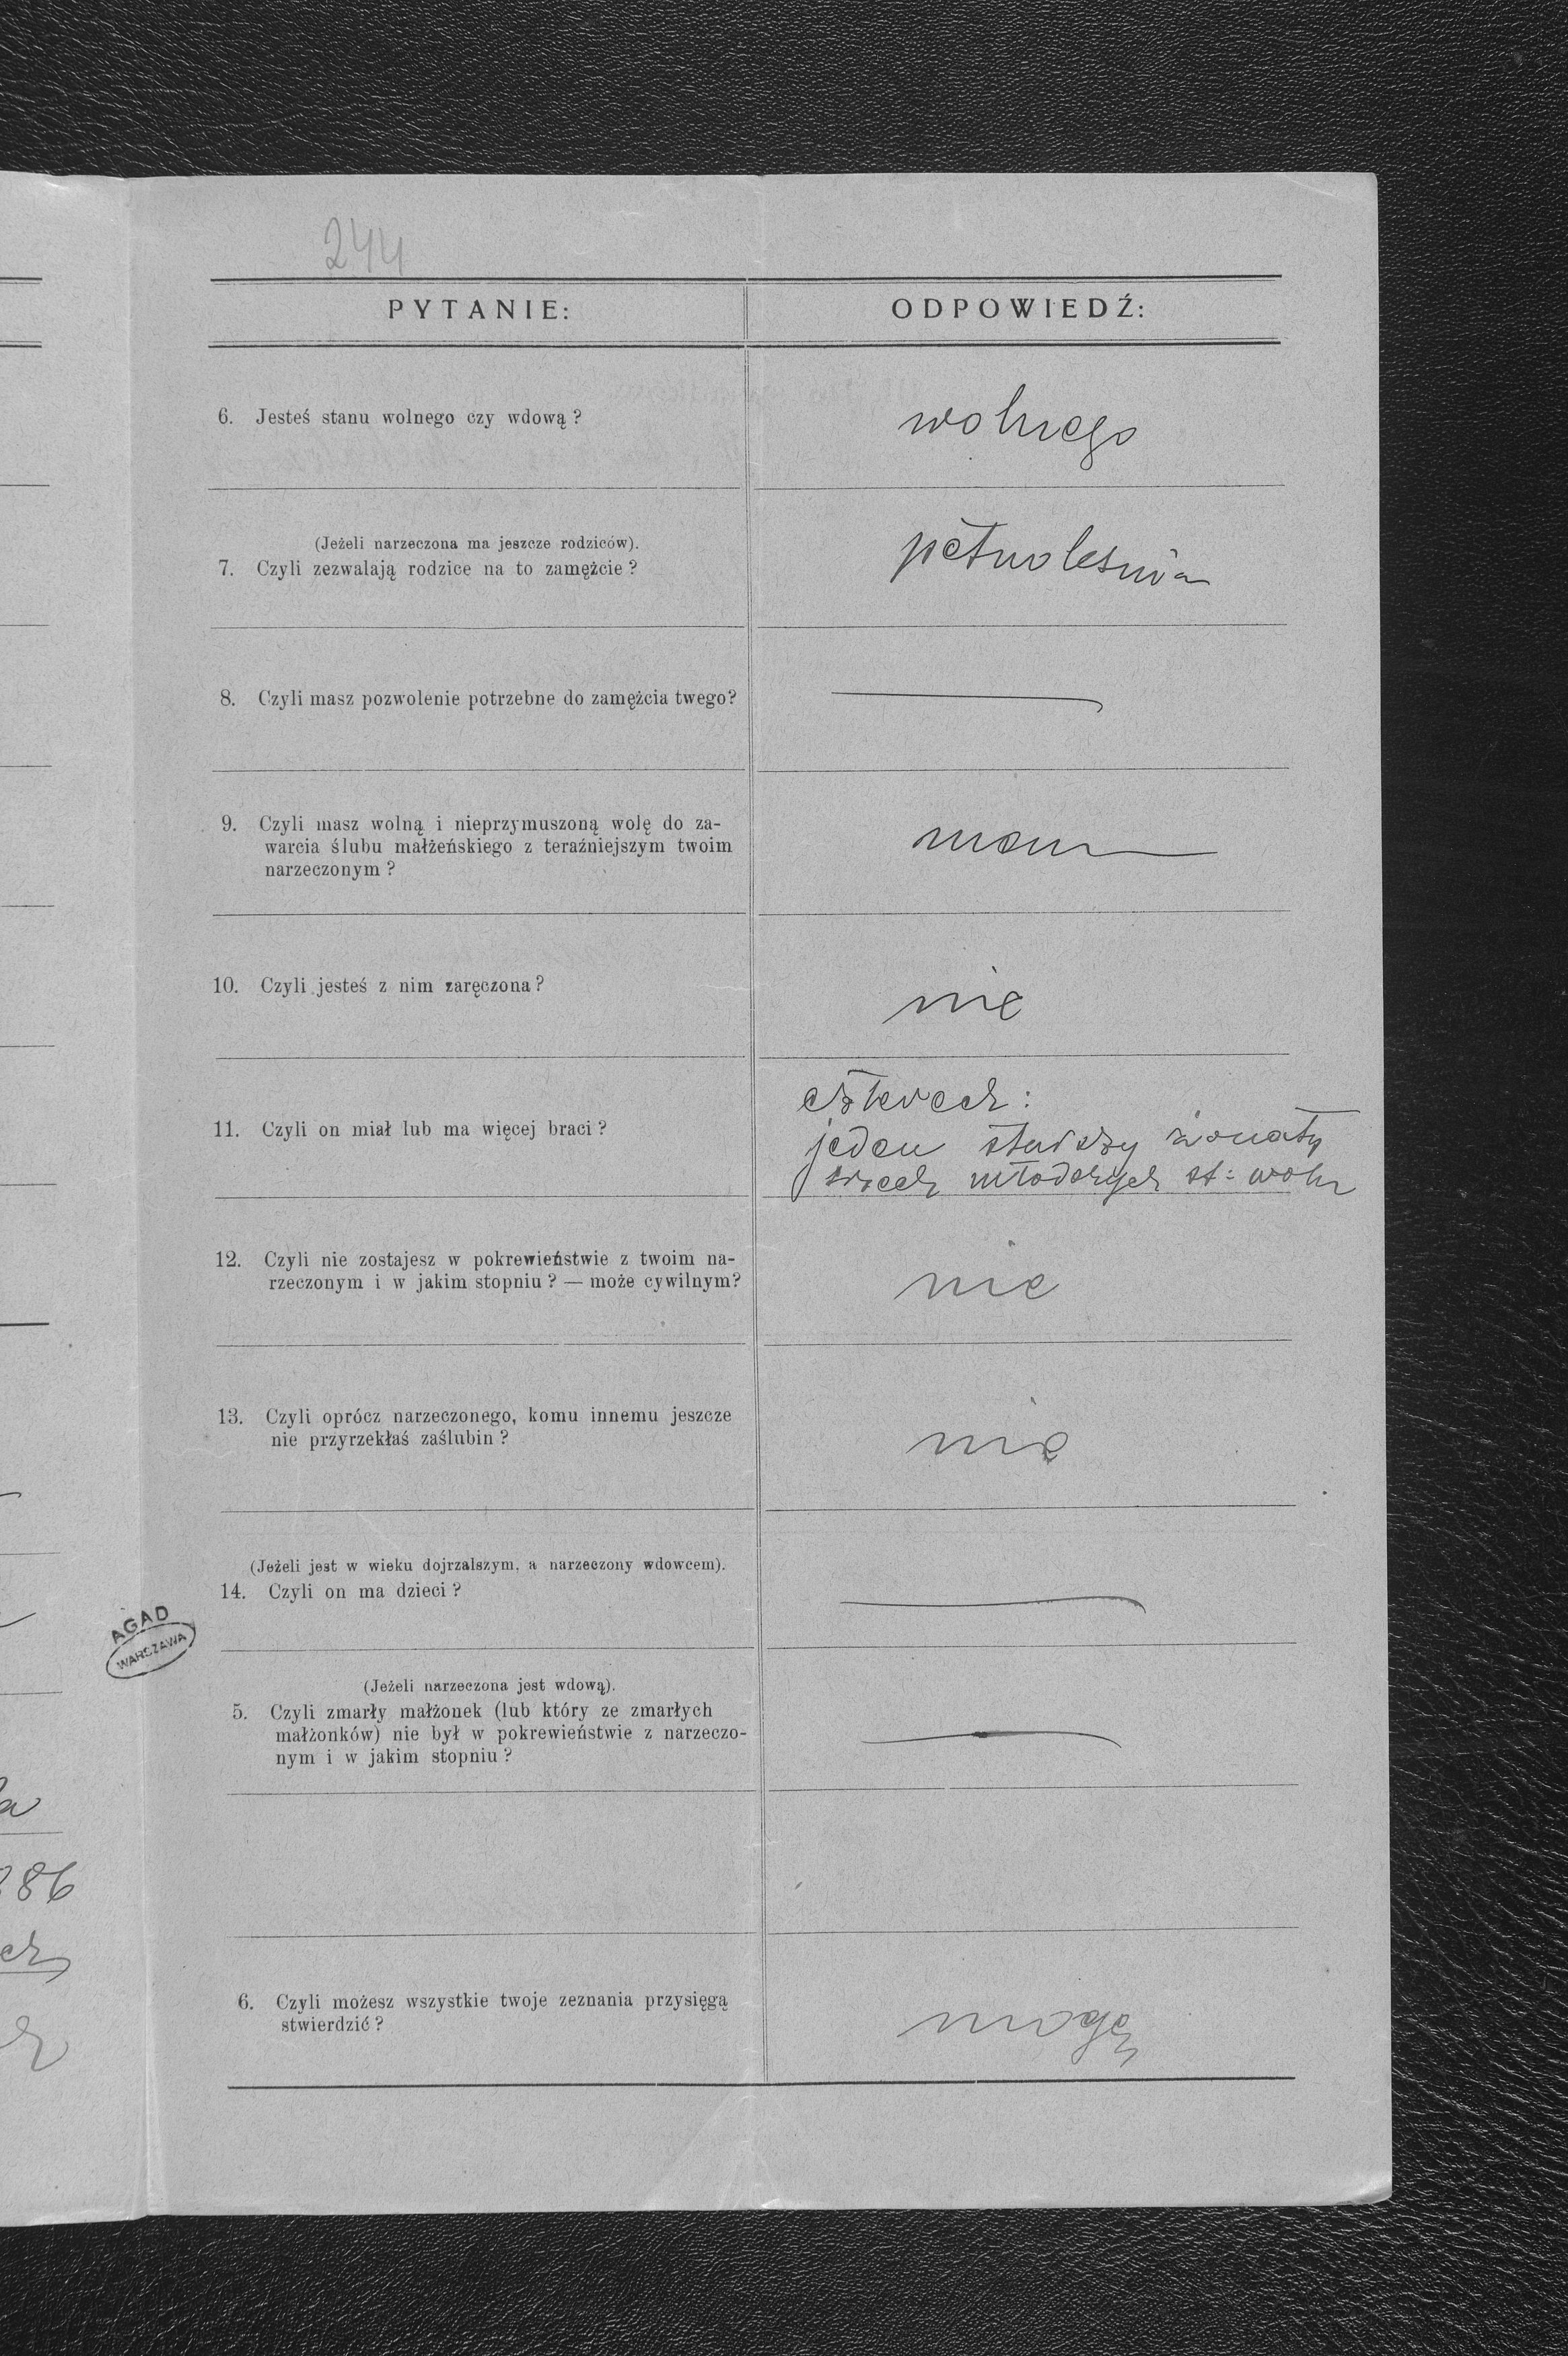 244
PYTANIE:
ODPOWIEDŹ:
6. Jesteś stanu wolnego czy wdową?
wolnego
(Jeżeli narzeczona ma jeszcze rodziców).
7. Czyli zezwalają rodzice na to zamężcie?
pełnoletnia
8. Czyli masz pozwolenie potrzebne do zamężcia twego?
9. Czyli masz wolną i nieprzymuszoną wolę do za-
warcia ślubu małżeńskiego z teraźniejszym twoim
narzeczonym?
mam
10. Czyli jesteś z nim zaręczona?
nie
11. Czyli on miał lub ma więcej braci?
czterech:
jeden starszy żonaty
trzech młodszych st: woln
12. Czyli nie zostajesz w pokrewieństwie z twoim na-
rzeczonym i w jakim stopniu? — może cywilnym?
nie
13. Czyli oprócz narzeczonego, komu innemu jeszcze
nie przyrzekłaś zaślubin?
nie
(Jeżeli jest w wieku dojrzalszym, a narzeczony wdowcem).
14. Czyli on ma dzieci?
AGAD
WARSZAWA
(Jeżeli narzeczona jest wdową).
5. Czyli zmarły małżonek (lub który ze zmarłych
małżonków) nie był w pokrewieństwie z narzeczo-
nym i w jakim stopniu?
86
6. Czyli możesz wszystkie twoje zeznania przysięgą
stwierdzić?
mogę